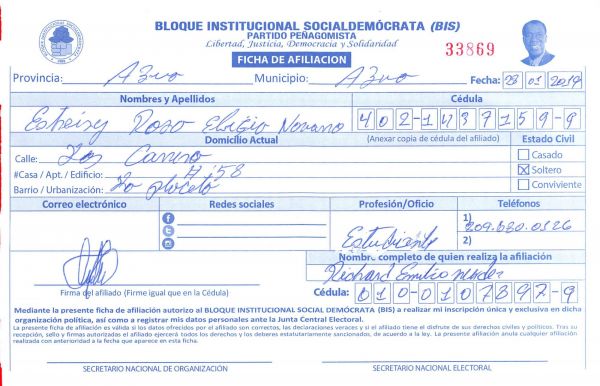 BLOQUE INSTITUCIONAL SOCIALDEMÓCRATA (BIS)
PARTIDO PEÑAGOMISTA
Libertad, Justicia, Democracia y Solidaridad
33869
FICHA DE AFILIACION
Provincia: Azuo Municipio: Azuo Fecha: 23 01 2019
Nombres y Apellidos Cédula
Roso Novano 402-1437159-9
Domicilio Actual (Anexar copia de la cédula del afiliado) Estado Civil
Calle: Los
#Casa / Apt. / Edificio: # 58
Barrio / Urbanización: La placeta
Casado
Soltero
Conviviente
Correo electrónico Redes sociales Profesión/Oficio Teléfonos
Estudiante
1) 809.330.0326
2)
Nombre completo de quien realiza la afiliación
Richard Emilio Mendez
Firma del afiliado (Firme igual que en la Cédula) Cédula: 010-0107897-9
Mediante la presente ficha de afiliación autorizo al BLOQUE INSTITUCIONAL SOCIAL DEMÓCRATA (BIS) a realizar mi inscripción única y exclusiva en dicha
organización política, así como a registrar mis datos personales ante la Junta Central Electoral.
La presente ficha de afiliación es válida si los datos ofrecidos por el afiliado son correctos, las declaraciones veraces y si el afiliado tiene el disfrute de sus derechos civiles y políticos. Tras su
recepción, sello y firmas autorizadas el afiliado ejercerá todos los derechos y los deberes estatutariamente sancionados, de acuerdo a la ley. La presente afiliación anula cualquier afiliación
realizada con anterioridad a la fecha que aparece en esta ficha.
SECRETARIO NACIONAL DE ORGANIZACIÓN SECRETARIO NACIONAL ELECTORAL